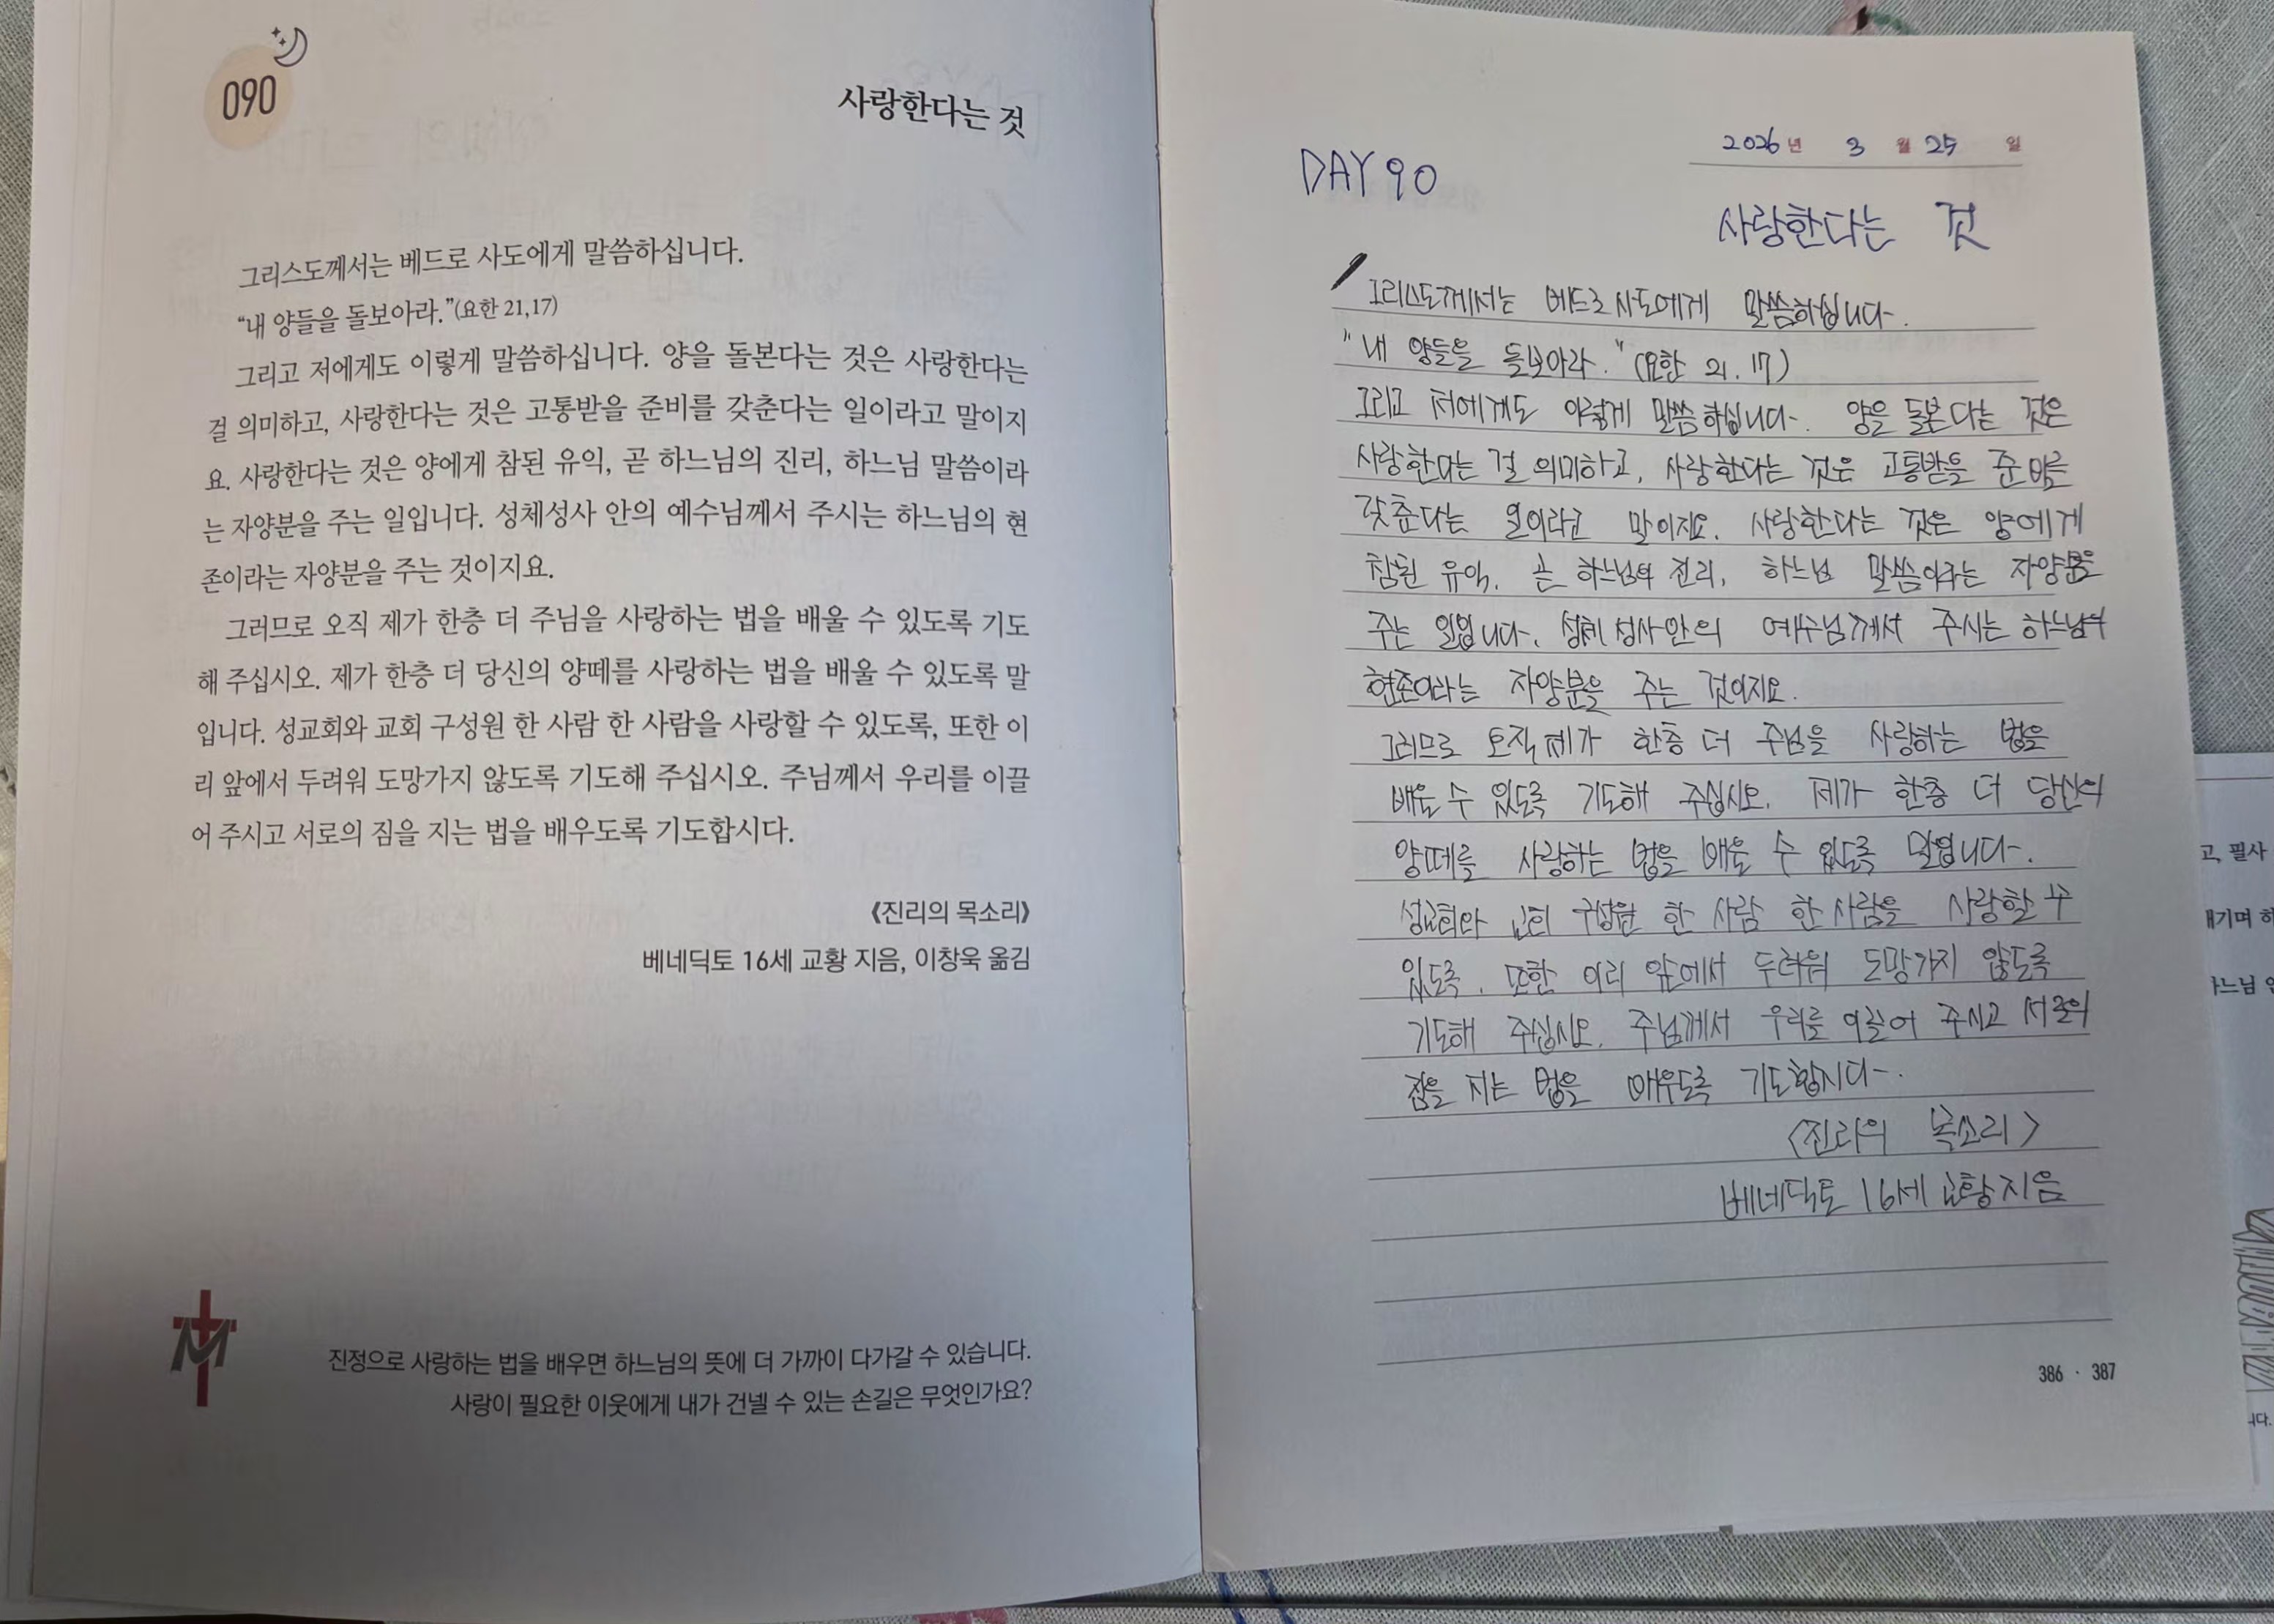 090
사랑한다는 것
그리스도께서는 베드로 사도에게 말씀하십니다.
“내 양들을 돌보아라.”(요한 21,17)
그리고 저에게도 이렇게 말씀하십니다. 양을 돌본다는 것은 사랑한다는
걸 의미하고, 사랑한다는 것은 고통받을 준비를 갖춘다는 일이라고 말이지
요. 사랑한다는 것은 양에게 참된 유익, 곧 하느님의 진리, 하느님 말씀이라
는 자양분을 주는 일입니다. 성체성사 안의 예수님께서 주시는 하느님의 현
존이라는 자양분을 주는 것이지요.
그러므로 오직 제가 한층 더 주님을 사랑하는 법을 배울 수 있도록 기도
해 주십시오. 제가 한층 더 당신의 양떼를 사랑하는 법을 배울 수 있도록 말
입니다. 성교회와 교회 구성원 한 사람 한 사람을 사랑할 수 있도록, 또한 이
리 앞에서 두려워 도망가지 않도록 기도해 주십시오. 주님께서 우리를 이끌
어 주시고 서로의 짐을 지는 법을 배우도록 기도합시다.
《진리의 목소리》
베네딕토 16세 교황 지음, 이창욱 옮김
진정으로 사랑하는 법을 배우면 하느님의 뜻에 더 가까이 다가갈 수 있습니다.
사랑이 필요한 이웃에게 내가 건넬 수 있는 손길은 무엇인가요?
2026년 3월 25일
DAY 90
사랑한다는 것
그리스도께서는 베드로 사도에게 말씀하십니다.
"내 양들을 돌보아라." (요한 21. 17)
그리고 저에게도 이렇게 말씀하십니다. 양을 돌본다는 것은
사랑한다는 걸 의미하고, 사랑한다는 것은 고통받을 준비를
갖춘다는 일이라고 말이지요. 사랑한다는 것은 양에게
참된 유익, 곧 하느님의 진리, 하느님 말씀이라는 자양분을
주는 일입니다. 성체성사안의 예수님께서 주시는 하느님의
현존이라는 자양분을 주는 것이지요.
그러므로 오직 제가 한층 더 주님을 사랑하는 법을
배울 수 있도록 기도해 주십시오. 제가 한층 더 당신의
양떼를 사랑하는 법을 배울 수 있도록 말입니다.
성교회와 교회 구성원 한 사람 한 사람을 사랑할 수
있도록, 또한 이리 앞에서 두려워 도망가지 않도록
기도해 주십시오. 주님께서 우리를 이끌어 주시고 서로의
짐을 지는 법을 배우도록 기도합시다.
<진리의 목소리>
베네딕토 16세 교황지음
386 · 387
고, 필사